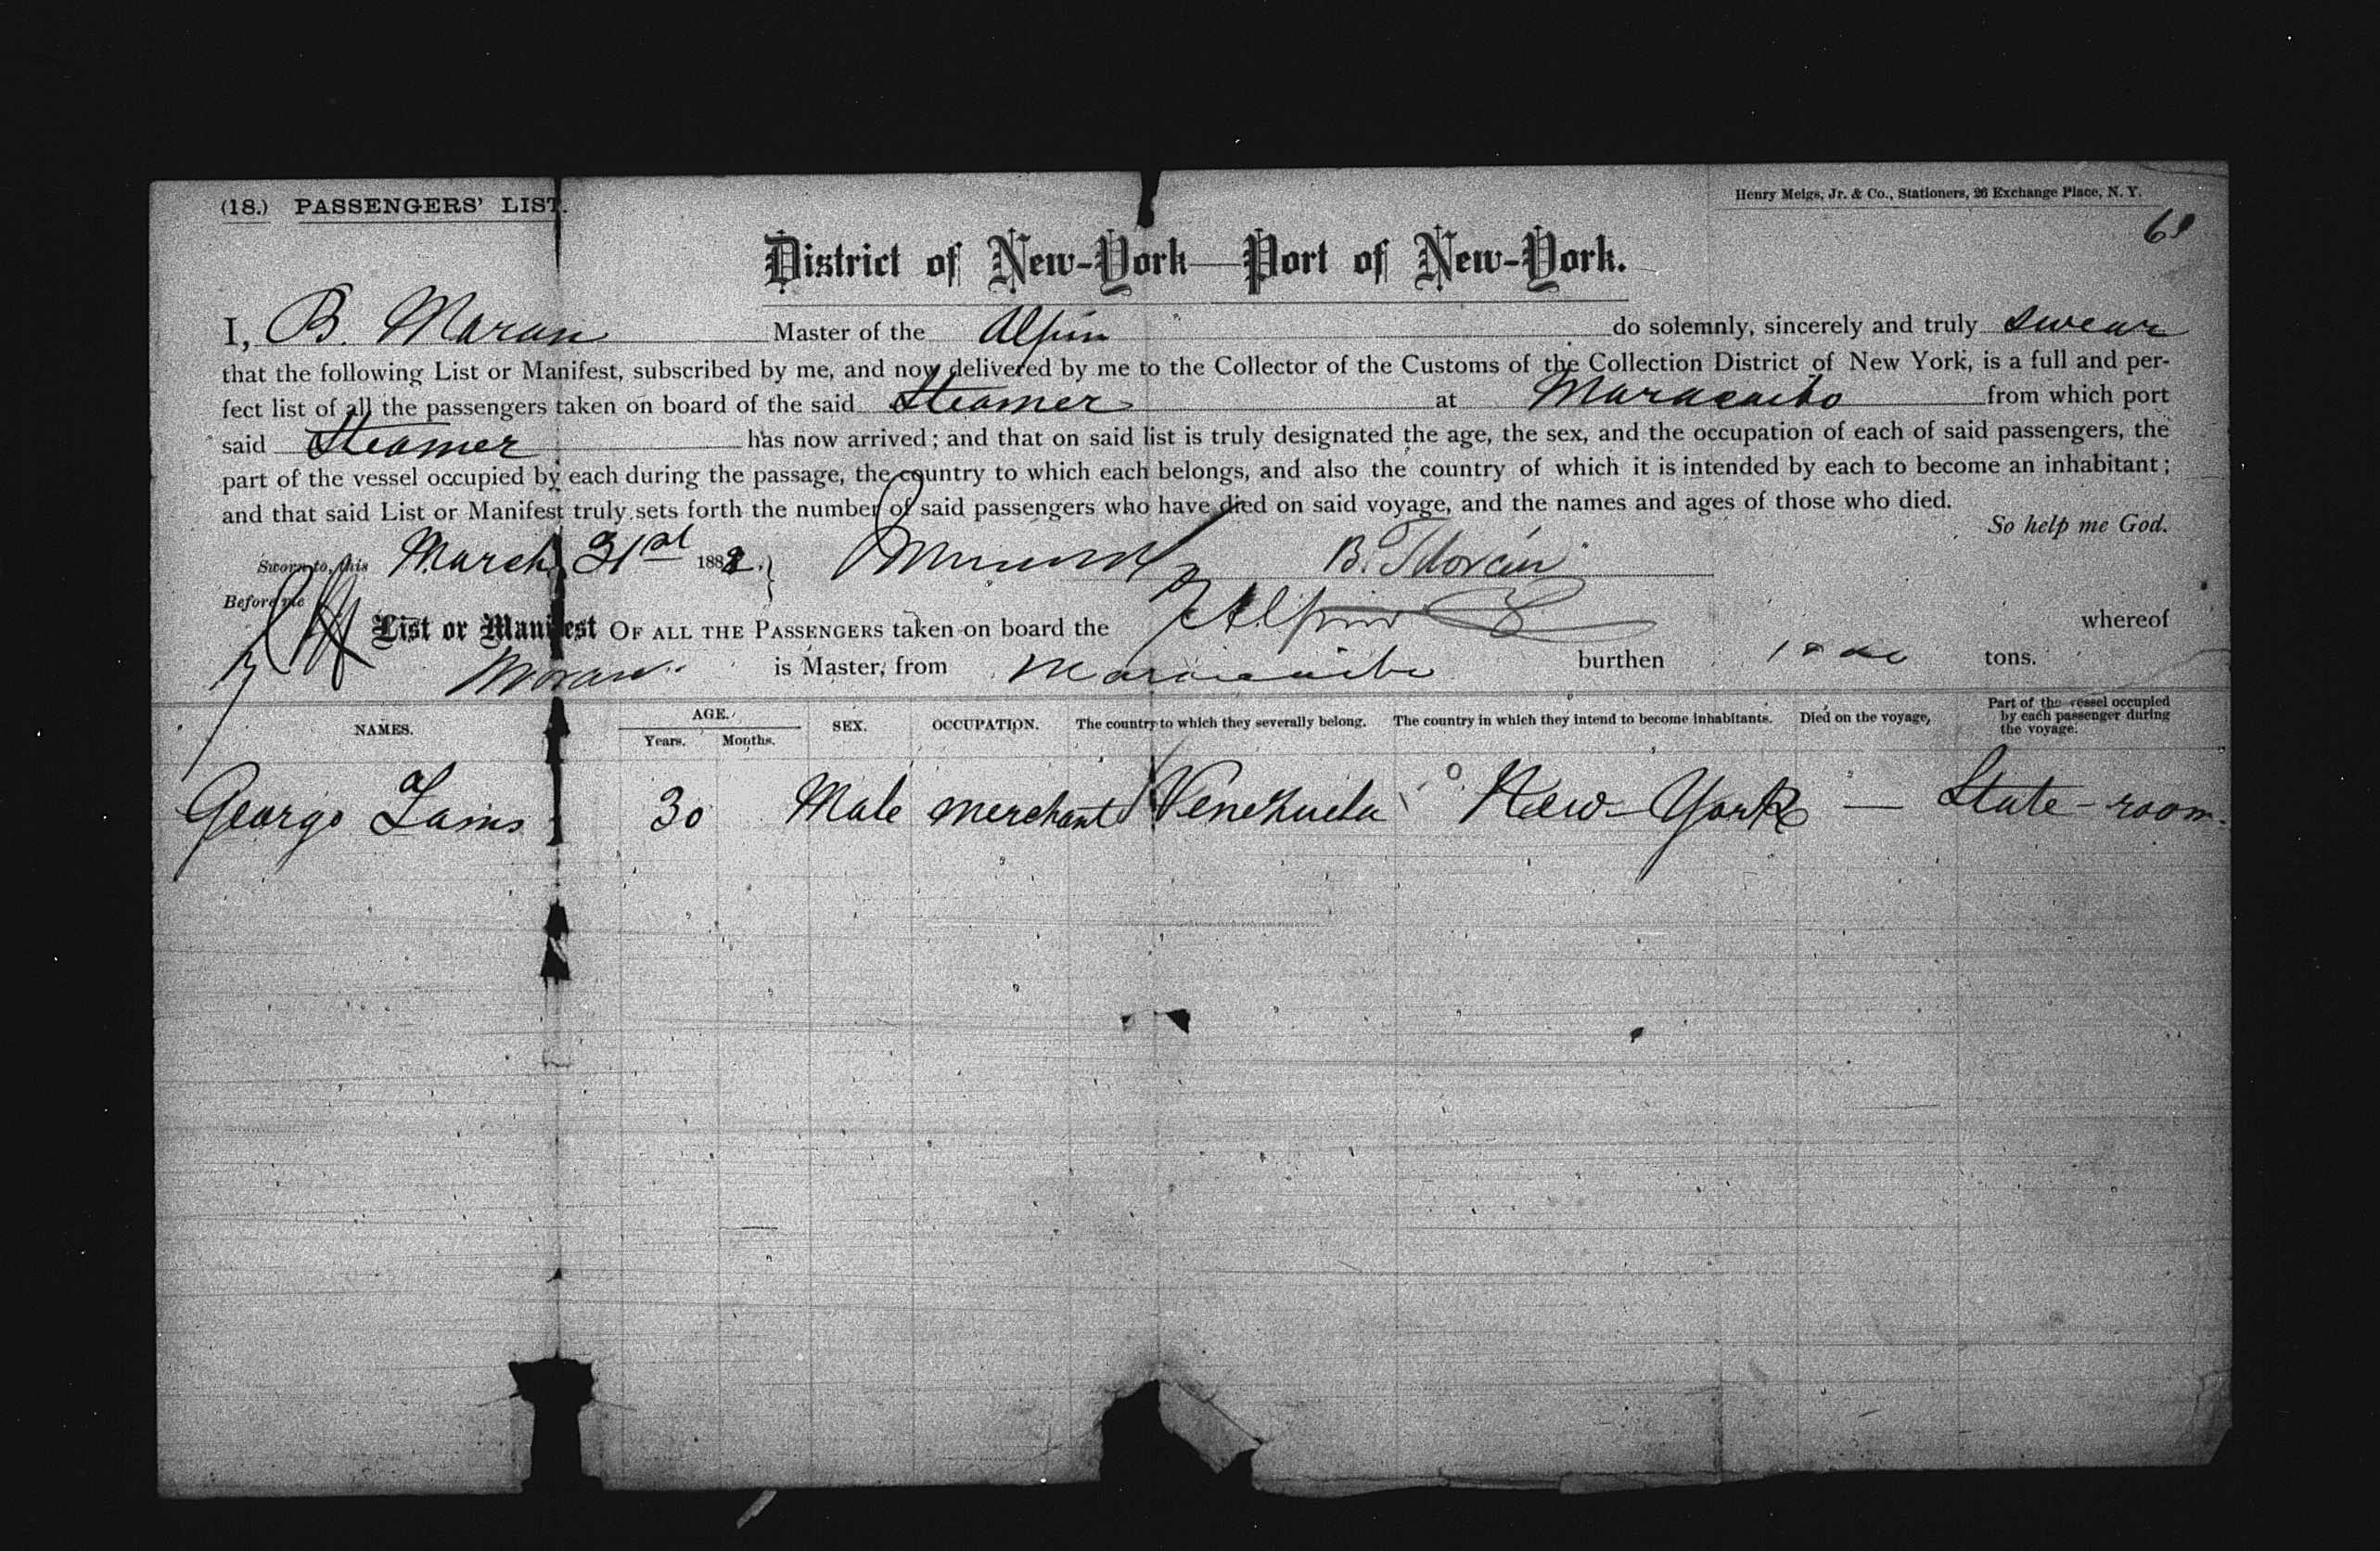 (18.) PASSENGERS' LIST.
Henry Meigs, Jr. & Co., Stationers, 26 Exchange Place, N. Y.
District of New-York—Port of New-York.
I, B. Moran Master of the Alpin do solemnly, sincerely and truly swear
that the following List or Manifest, subscribed by me, and now delivered by me to the Collector of the Customs of the Collection District of New York, is a full and per-
fect list of all the passengers taken on board of the said Steamer at Maracaibo from which port
said Steamer has now arrived; and that on said list is truly designated the age, the sex, and the occupation of each of said passengers, the
part of the vessel occupied by each during the passage, the country to which each belongs, and also the country of which it is intended by each to become an inhabitant;
and that said List or Manifest truly sets forth the number of said passengers who have died on said voyage, and the names and ages of those who died.
So help me God.
Sworn to, this March 31st 1882. B. Moran
Before me
List or Manifest OF ALL THE PASSENGERS taken on board the Alpin whereof
Moran is Master, from Maracaibo burthen tons.
NAMES. AGE. Years. Months. SEX. OCCUPATION. The country to which they severally belong. The country in which they intend to become inhabitants. Died on the voyage, Part of the vessel occupied by each passenger during the voyage.
George 30 Male merchant Venezuela New-York — State-room.